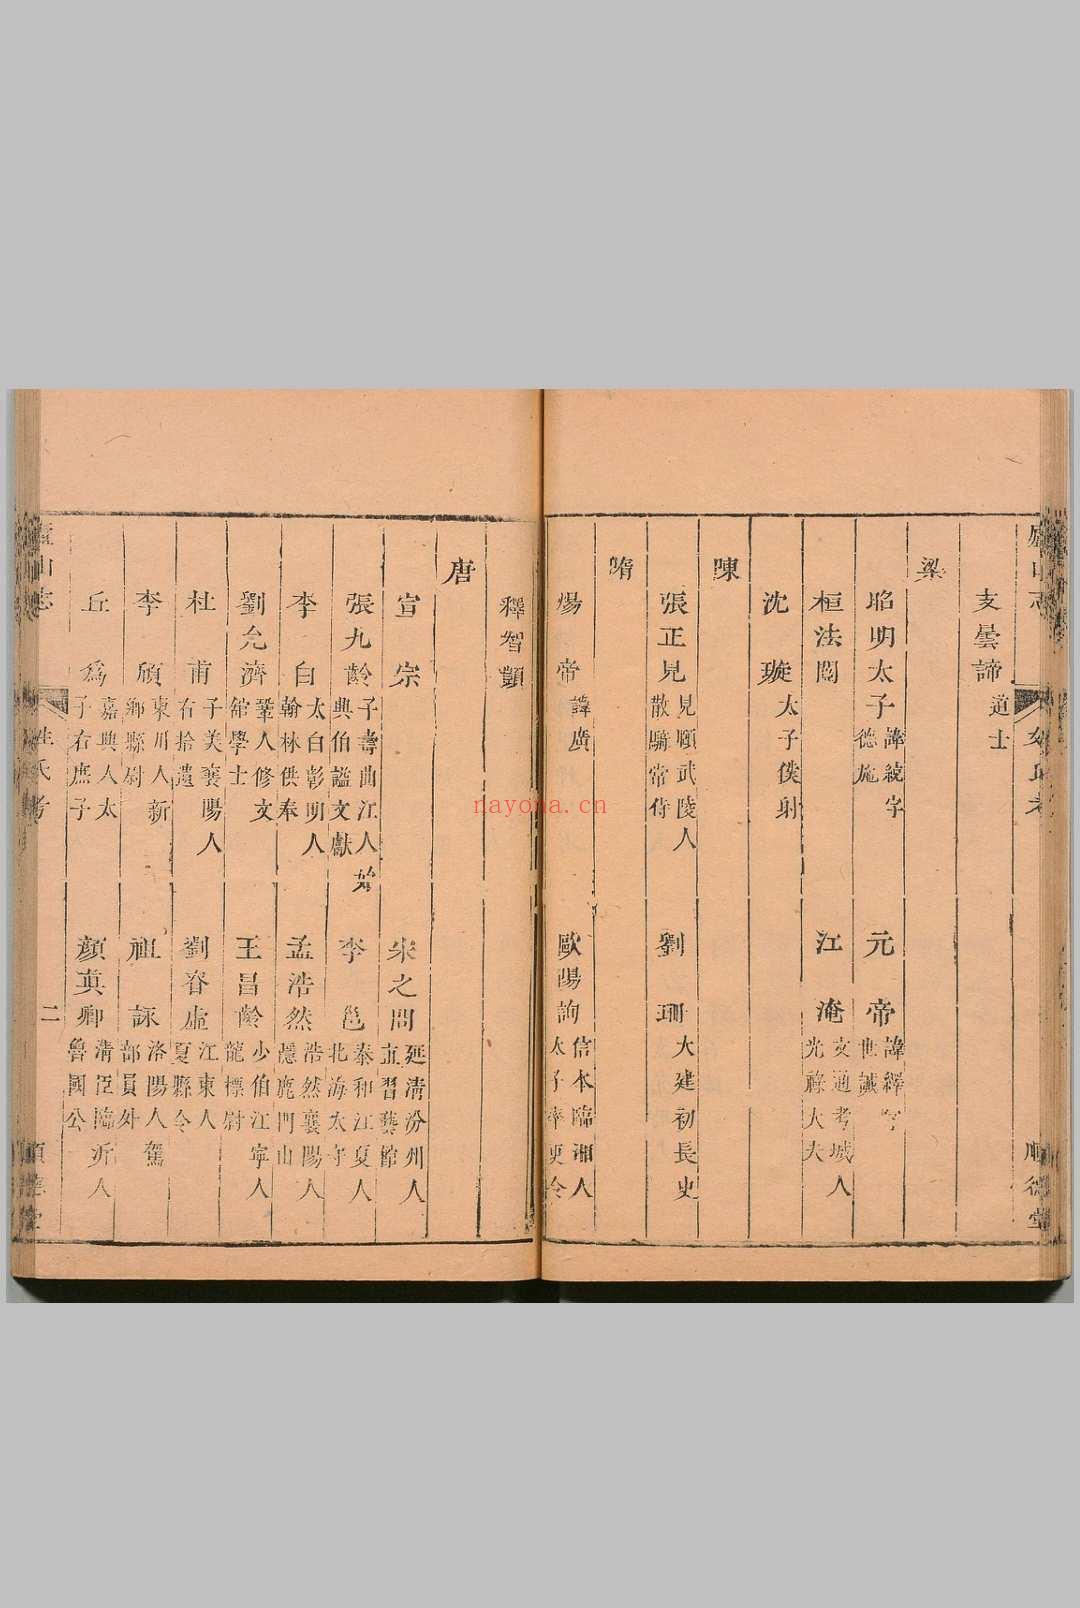 廬山志
姓氏考
順德堂
支曇諦道士
梁
昭明太子諱統字德施
元帝諱繹字世誠
桓法闓
江淹文通考城人光祿大夫
沈璇太子僕射
陳
張正見見頤武陵人散騎常侍
劉珊大建初長史
隋
煬帝諱廣
歐陽詢信本臨湘人太子率更令
釋智顗
唐
宣宗
宋之問延清汾州人直習藝館
張九齡子壽曲江人始興伯謚文獻
李邕泰和江夏人北海太守
李白太白彰明人翰林供奉
孟浩然浩然襄陽人隱鹿門山
劉允濟鞏人修文館學士
王昌齡少伯江寧人龍標尉
杜甫子美襄陽人右拾遺
劉眘虛江東人夏縣令
李頎東川人新鄉縣尉
祖詠洛陽人駕部員外
丘爲嘉興人太子右庶子
顏真卿清臣臨沂人魯國公
廬山志
姓氏考
二
順德堂
nayona.cn